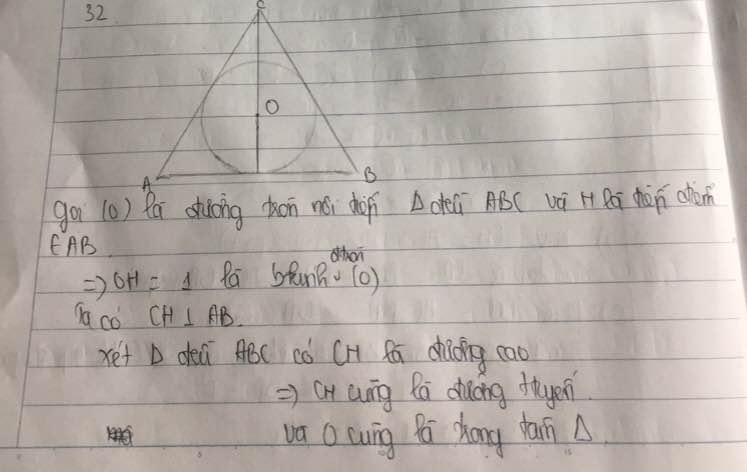 32
C
O
A
B
gọi (O) là đường tròn nội tiếp Δ đều ABC và H là tiếp điểm
∈ AB.
đtròn
=> OH = 1 là bkính (O)
Ta có CH ⊥ AB.
xét Δ đều ABC có CH là đường cao
=> CH cũng là đường tuyến.
và O cũng là trọng tâm Δ.